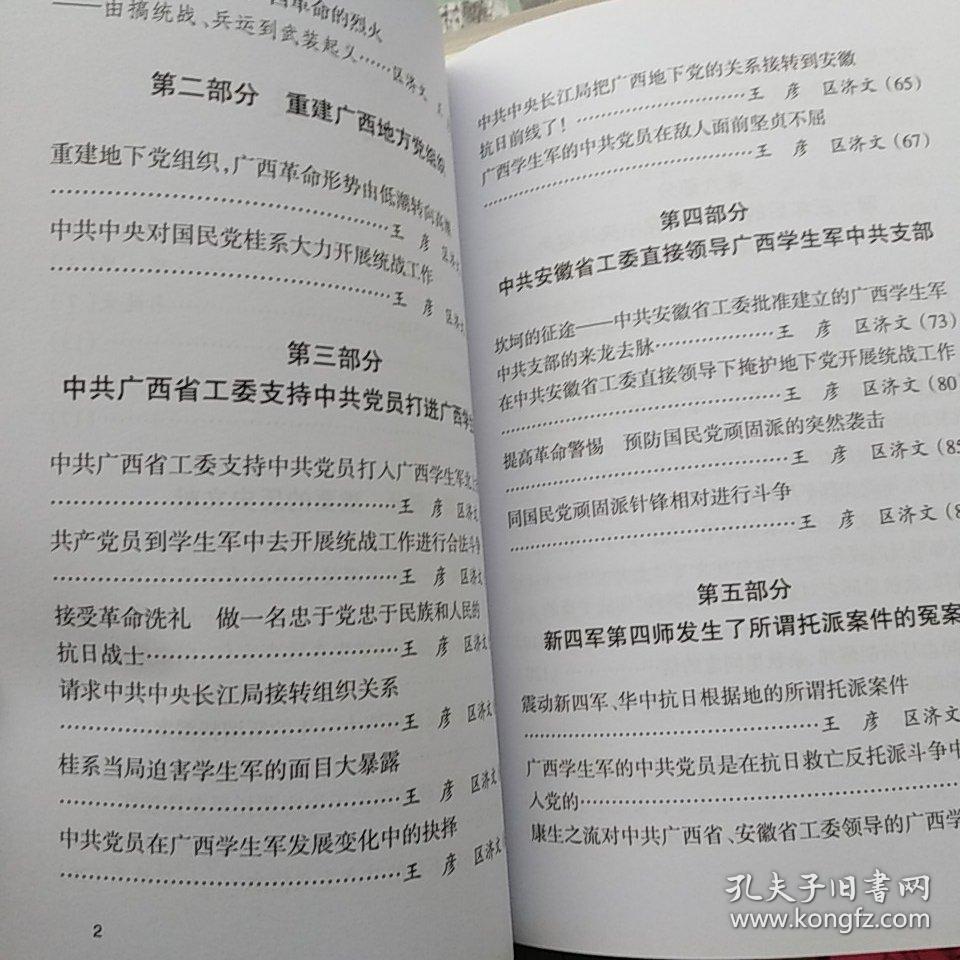 西革命的烈火
——由搞统战、兵运到武装起义……区济文
第二部分 重建广西地方党组织
重建地下党组织,广西革命形势由低潮转向高潮
……王 彦 区济文
中共中央对国民党桂系大力开展统战工作
……王 彦 区济文
第三部分
中共广西省工委支持中共党员打进广西学生
中共广西省工委支持中共党员打入广西学生军北上
……王 彦 区济文
共产党员到学生军中去开展统战工作进行合法斗争
……王 彦 区济文
接受革命洗礼 做一名忠于党忠于民族和人民的
抗日战士……王 彦 区济文
请求中共中央长江局接转组织关系
……王 彦 区济文
桂系当局迫害学生军的面目大暴露
……王 彦 区济文
中共党员在广西学生军发展变化中的抉择
……王 彦 区济文
2
中共中央长江局把广西地下党的关系接转到安徽
抗日前线了!……王 彦 区济文(65)
广西学生军的中共党员在敌人面前坚贞不屈
……王 彦 区济文(67)
第四部分
中共安徽省工委直接领导广西学生军中共支部
坎坷的征途——中共安徽省工委批准建立的广西学生军
中共支部的来龙去脉……王 彦 区济文(73)
在中共安徽省工委直接领导下掩护地下党开展统战工作
……王 彦 区济文(80
提高革命警惕 预防国民党顽固派的突然袭击
……王 彦 区济文(85
同国民党顽固派针锋相对进行斗争
……王 彦 区济文(8
第五部分
新四军第四师发生了所谓托派案件的冤案
震动新四军、华中抗日根据地的所谓托派案件
……王 彦 区济文
广西学生军的中共党员是在抗日救亡反托派斗争中
入党的……王 彦 区济文
康生之流对中共广西省、安徽省工委领导的广西学
孔夫子旧书网
www.kongfz.com